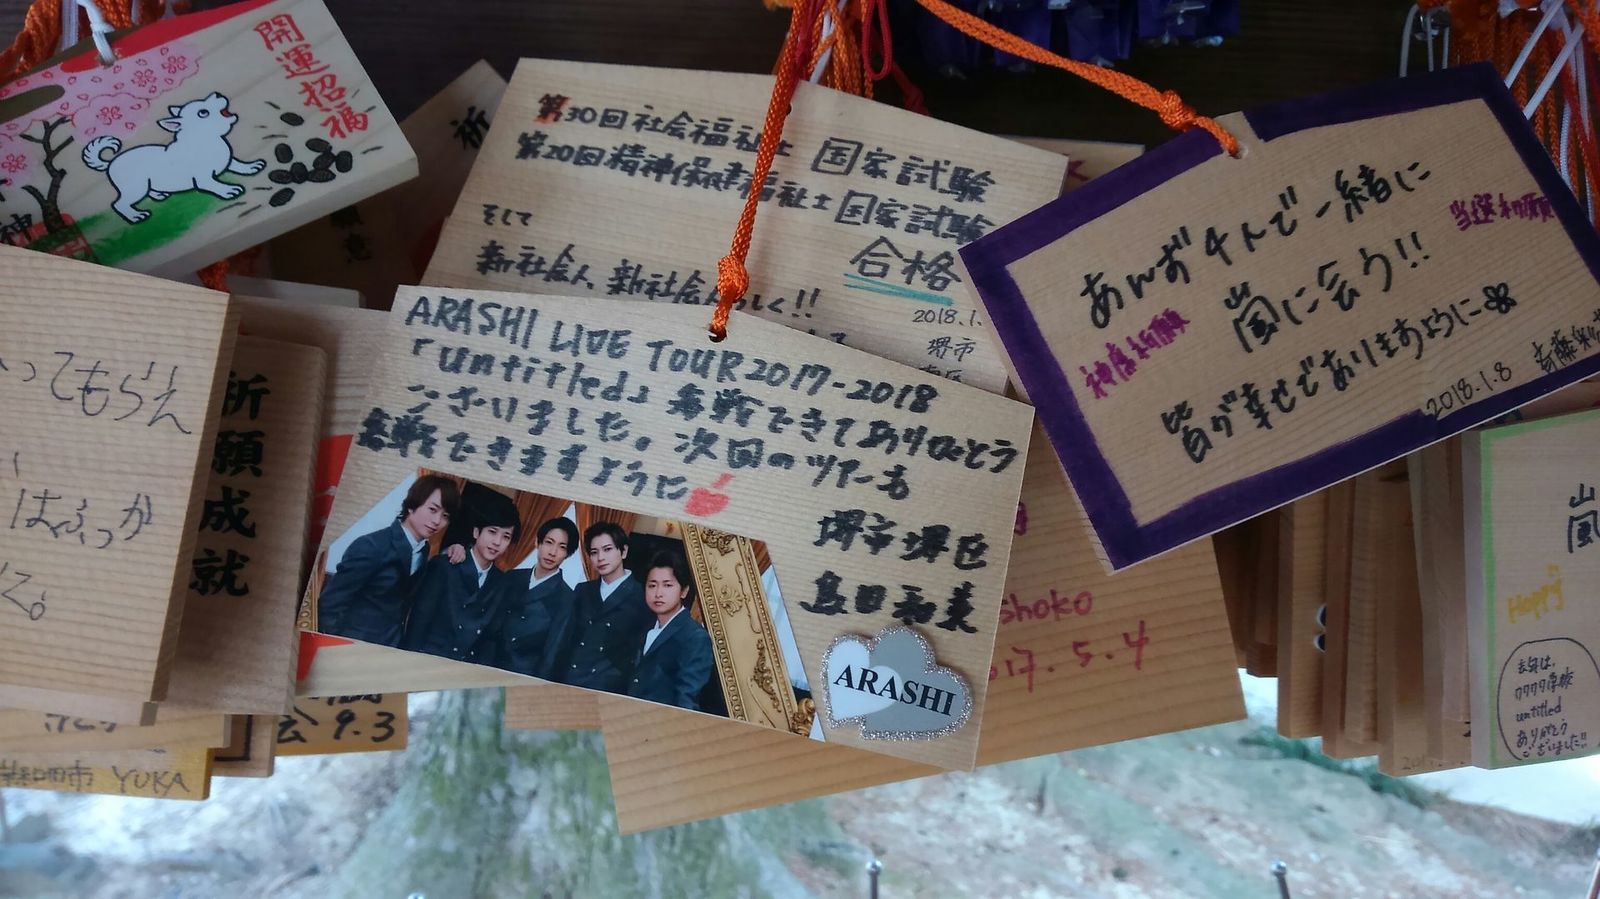 開運招福
神
祈
第30回社会福祉士 国家試験
第20回精神保健福祉士 国家試験
合格
そして
新社会人、新社会人らしく!!
2018.1.
堺市
ARASHI LIVE TOUR 2017-2018
「untitled」参戦できてありがとう
ございました。次回のツアーも
参戦できますように
堺市堺区
ARASHI
あんずチんで一緒に
嵐に会う!!
皆が幸せでありますように
当選祈願
神席祈願
2018.1.8
ってもらえ
はふっか
祈願成就
会 9.3
岸和田市 YUKA
shoko
017.5.4
嵐
Happy
去年は、
ワクワク学校
untitled
ありがとう
ございました!!